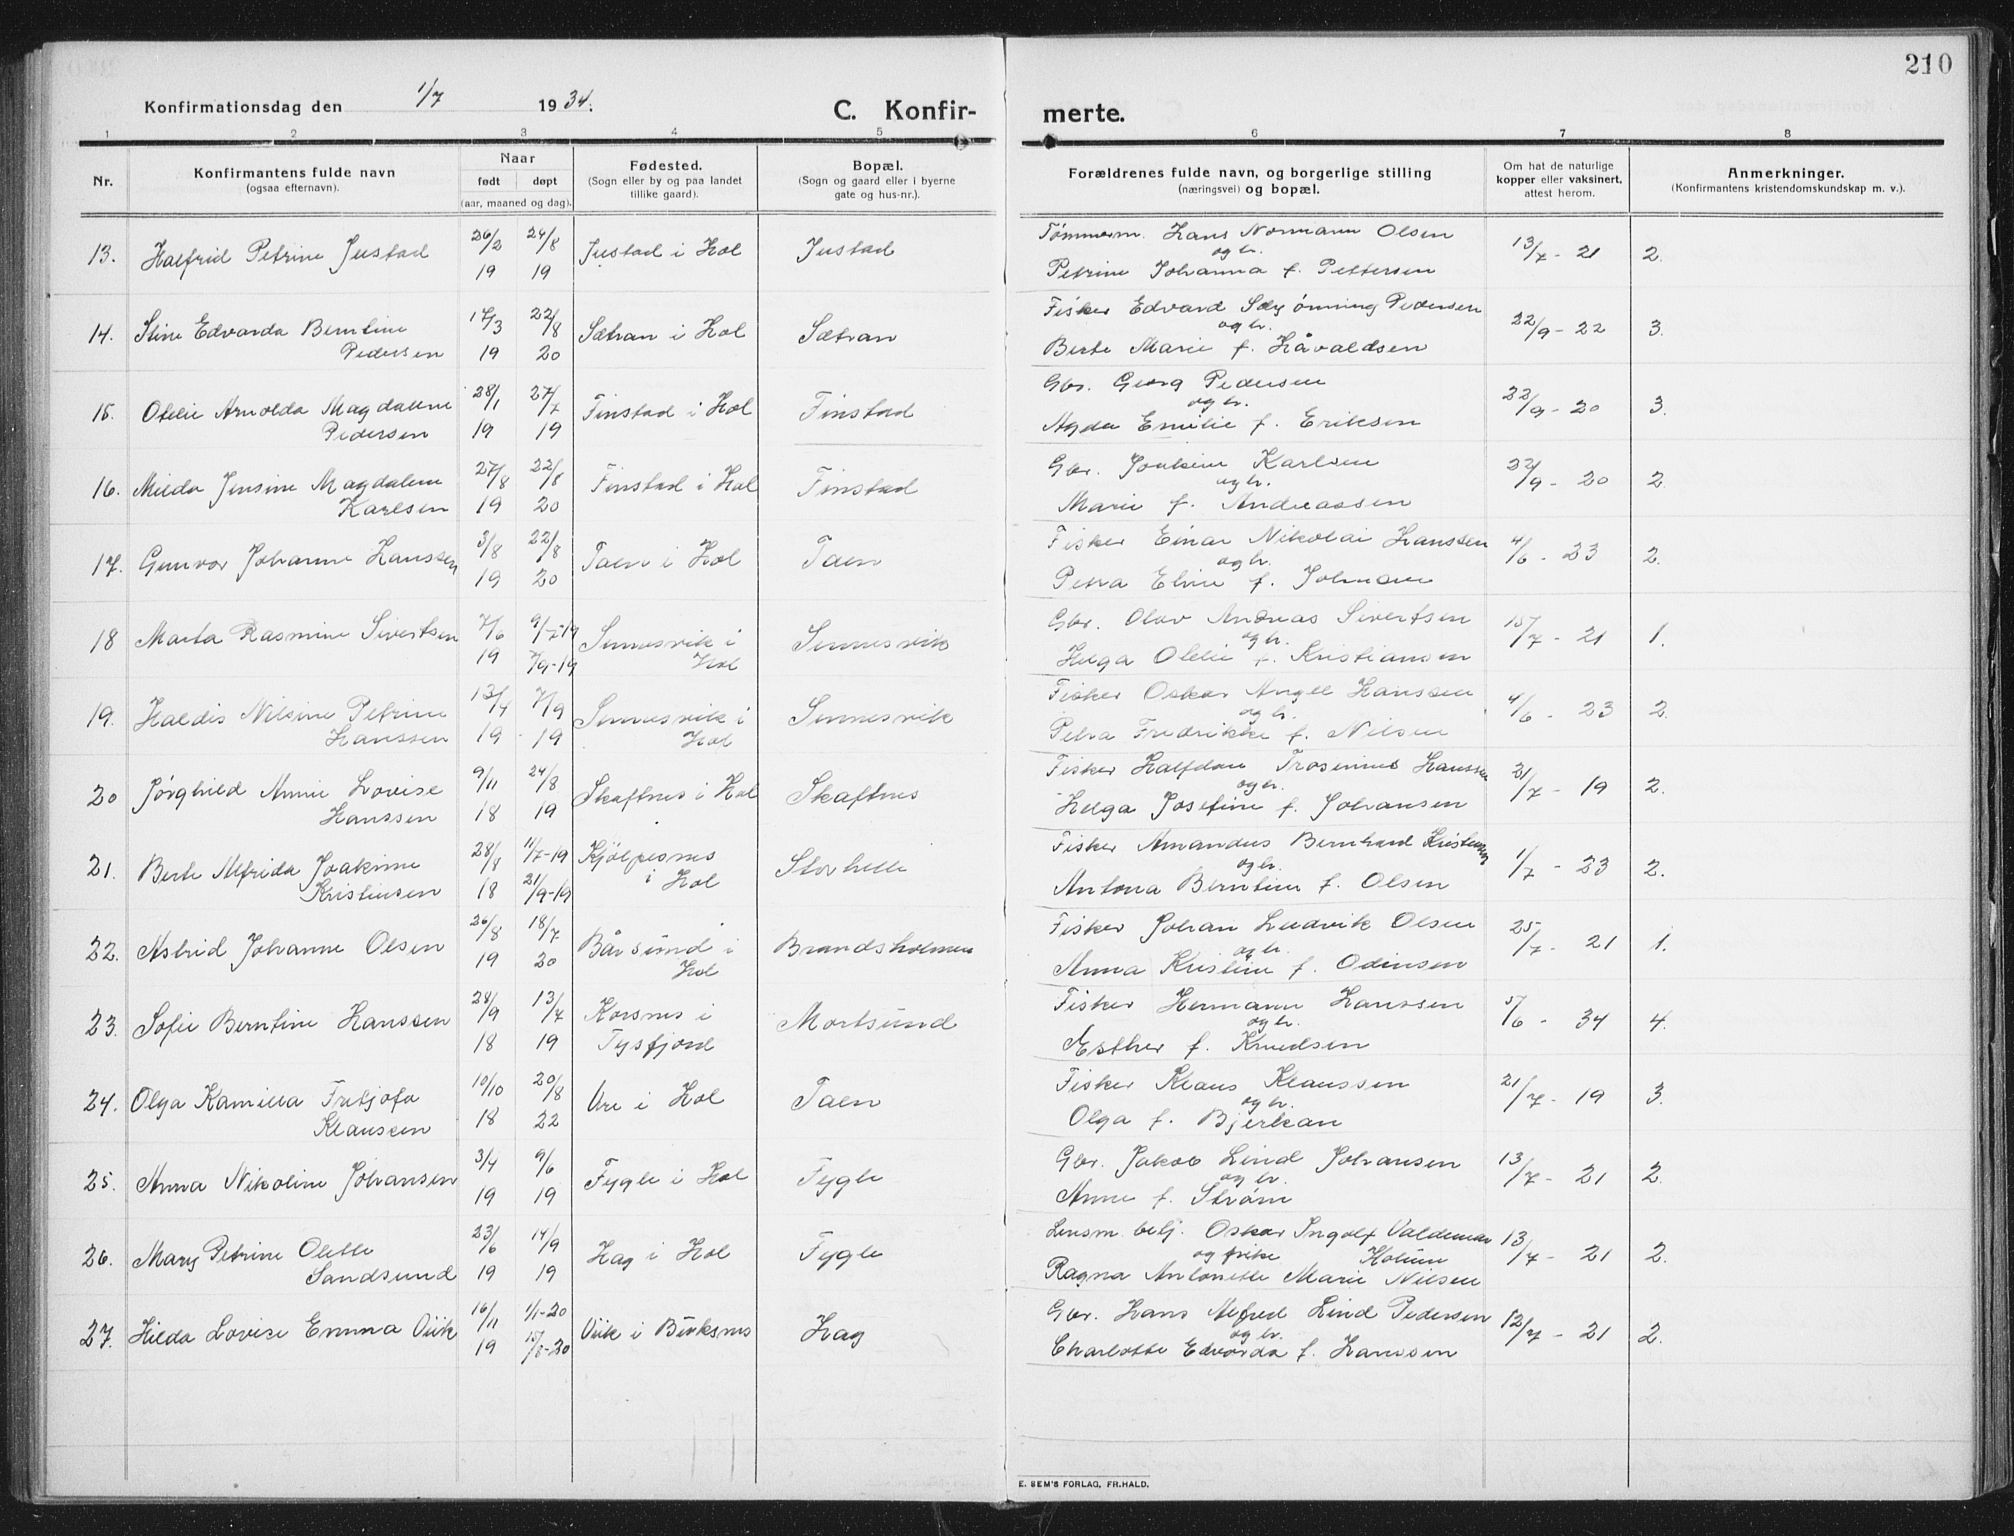 210
Konfirmationsdag den 1/7 1934.
C. Konfir-
merte.
1 2 3 4 5 6 7 8
Nr.
Konfirmantens fulde navn
(ogsaa efternavn).
Naar
født døpt
(aar, maaned og dag).
Fødested.
(Sogn eller by og paa landet
tillike gaard).
Bopæl.
(Sogn og gaard eller i byerne
gate og hus-nr.).
Forældrenes fulde navn, og borgerlige stilling
(næringsvei) og bopæl.
Om hat de naturlige
kopper eller vaksinert,
attest herom.
Anmerkninger.
(Konfirmantens kristendomskundskap m. v.).
13. Halfrid Petrine Justad 26/2 19 24/8 19 Justad i Hol Justad
Tømmerm. Hans Normann Olsen
og h.
Petrine Johanna f. Pettersen
13/7 - 21 2.
14. Stine Edvarda Berntine
Pedersen
17/3 19 22/8 20 Sætran i Hol Sætran
Fisker Edvard Pedersen
og h.
Berte Marie f. Håvaldsen
22/9 - 22 3.
15. Otelie Arnolda Magdalene
Pedersen
28/1 19 27/7 19 Finstad i Hol Finstad
Gbr. Georg Pedersen
og h.
Agda Emilie f. Eriksen
22/9 - 20 3.
16. Milda Jensine Magdalene
Karlsen
27/8 19 22/8 20 Finstad i Hol Finstad
Gbr. Joakim Karlsen
og h.
Marie f. Andreassen
22/9 - 20 2.
17. Gunvor Johanne Hanssen 3/8 19 22/8 20 Taen i Hol Taen
Fisker Einar Nikolai Hanssen
og h.
Petra Eline f. Johnsen
4/6 - 23 2.
18 Marta Rasmine Sivertsen 7/6 19 9/7-19 7/9-19 Sennesvik i
Hol
Sennesvik
Gbr. Olav Andreas Sivertsen
og h.
Helga Otelie f. Kristiansen
15/7 - 21 1.
19. Haldis Nilsine Petrine
Hanssen
13/4 19 7/9 19 Sennesvik i
Hol
Sennesvik
Fisker Oskar Angel Hanssen
og h.
Petra Fredrikke f. Nilsen
4/6 - 23 2.
20 Jørghild Annie Lovise
Hanssen
9/11 18 24/8 19 Skaftnes i Hol Skaftnes
Fisker Halfdan Hanssen
og h.
Helga Josefine f. Johansen
21/7 - 19 2.
21. Berte Alfrida Joakime
Kristensen
28/8 18 11/7-19 21/9-19 Kjølpesnes
i Hol
Storhelle
Fisker Amandus Bernhard Kristensen
og h.
Antona Berntine f. Olsen
1/7 - 23 2.
22. Astrid Johanne Olsen 26/8 19 18/7 20 Bårsund i
Hol
Brandsholmen
Fisker Johan Ludvik Olsen
og h.
Anna Kristine f. Odinsen
25/7 - 21 1.
23. Sofie Berntine Hanssen 28/9 18 13/7 19 Korsnes i
Tysfjord
Mortsund
Fisker Hermann Hanssen
og h.
Esther f. Knudsen
5/6 - 34 4.
24. Olga Kamilla Fritjofa
Klaussen
10/10 18 20/8 22 Ure i Hol Taen
Fisker Klaus Klaussen
og h.
Olga f. Bjerkan
21/7 - 19 3.
25. Anna Nikoline Johansen 3/4 19 9/6 19 Fygle i Hol Fygle
Gbr. Jakob Lind Johansen
og h.
Anne f. Strøm
13/7 - 21 2.
26. Mary Petrine Olette
Sandsund
23/6 19 14/9 19 Hag i Hol Fygle
Lensm. betj. Oskar Ingolf Valdemar
og frike Holum
Ragna Antonette Marie Nilsen
13/7 - 21 2.
27. Hilda Lovise Emma Viik 16/11 19 1/1-20 15/8-20 Viik i Buksnes Hag
Gbr. Hans Alfred Lind Pedersen
og h.
Charlotte Edvarda f. Hanssen
12/7 - 21 2.
E. SEM'S FORLAG, FR.HALD.